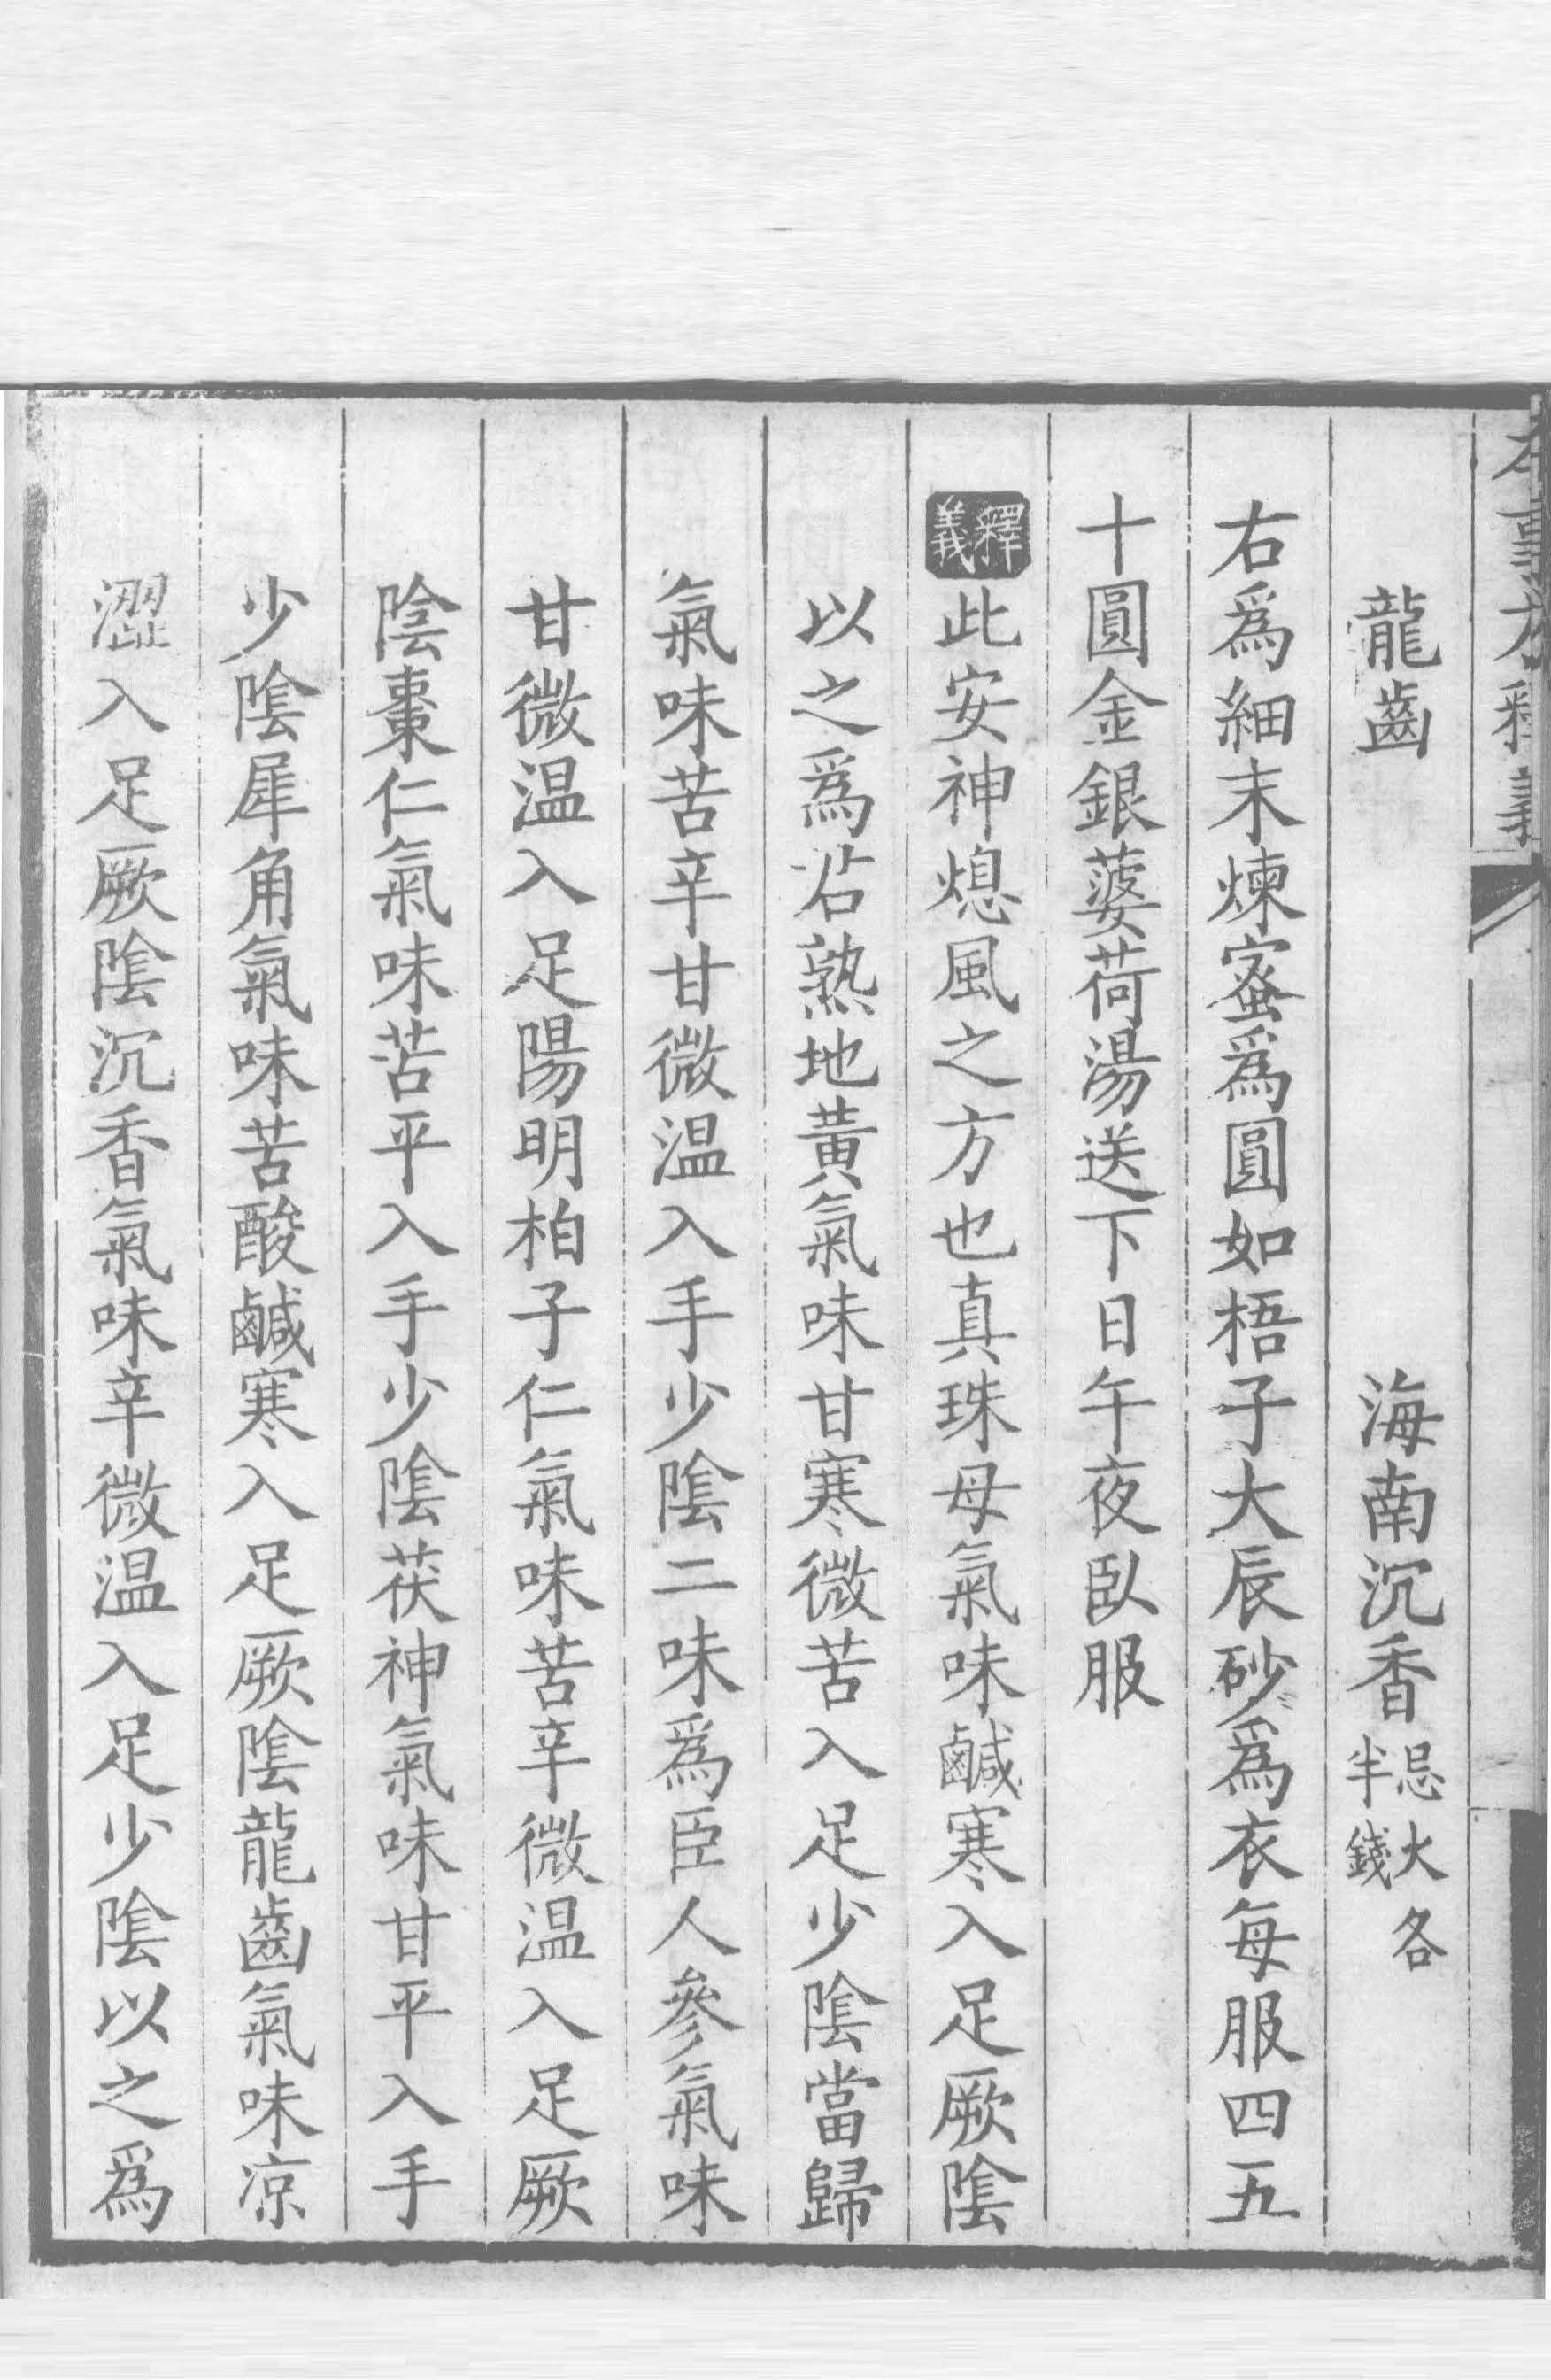 本事方釋義
龍齒 海南沉香忌火各半錢
右爲細末煉蜜爲圓如梧子大辰砂爲衣每服四五
十圓金銀薄荷湯送下日午夜臥服
釋義此安神熄風之方也真珠母氣味鹹寒入足厥陰
以之爲君熟地黃氣味甘寒微苦入足少陰當歸
氣味苦辛甘微溫入手少陰二味爲臣人參氣味
甘微溫入足陽明柏子仁氣味苦辛微溫入足厥
陰棗仁氣味苦平入手少陰茯神氣味甘平入手
少陰犀角氣味苦酸鹹寒入足厥陰龍齒氣味凉
澀入足厥陰沉香氣味辛微溫入足少陰以之爲